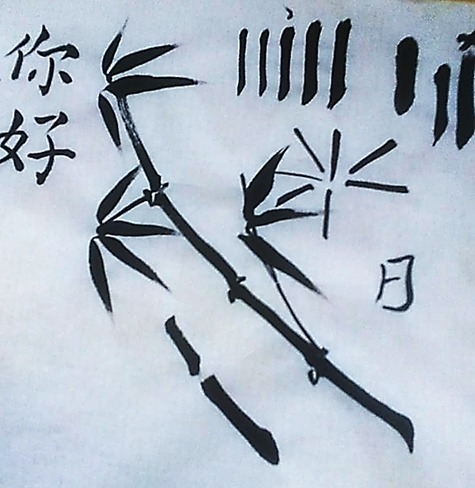 你
好
月